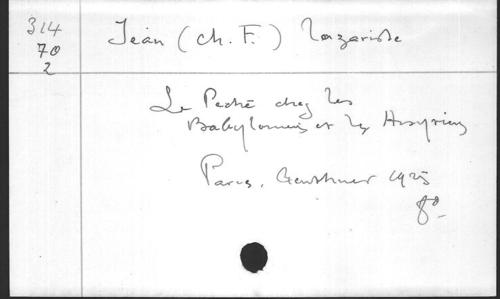 314
70
2
Jean (Ch. F.) Lazariste
Le Péché chez les
Babyloniens et les Assyriens
Paris, Geuthner 1925
8°